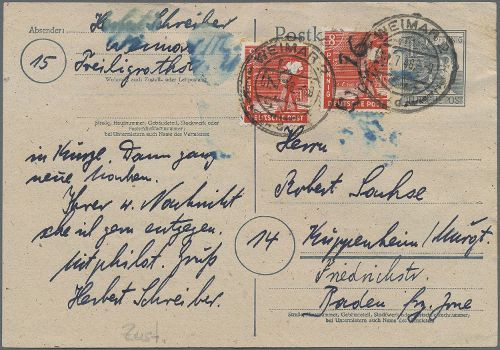 Absender: Herbert Schreiber
Weimar
15
Freiligrathstr
Wohnort, auch Zustell- oder Leitpostamt
Straße, Hausnummer, Gebäudeteil, Stockwerk oder
Postschließfachnummer;
bei Untermietern auch Name des Vermieters
in Kürze. Dann ganz
neue Marken.
Ihrer w. Nachricht
sehe ich gern entgegen.
Mit philat. Gruß
Herbert Schreiber.
Postkarte
WEIMAR
DEUTSCHE POST
8
WEIMAR
DEUTSCHE POST
36
WEIMAR
Herrn
Robert Sachse
14
Kuppenheim/Murgt.
Friedrichstr.
Baden frz. Zone
Straße, Hausnummer, Gebäudeteil, Stockwerk oder Postschließfachnummer;
bei Untermietern auch Name des Vermieters